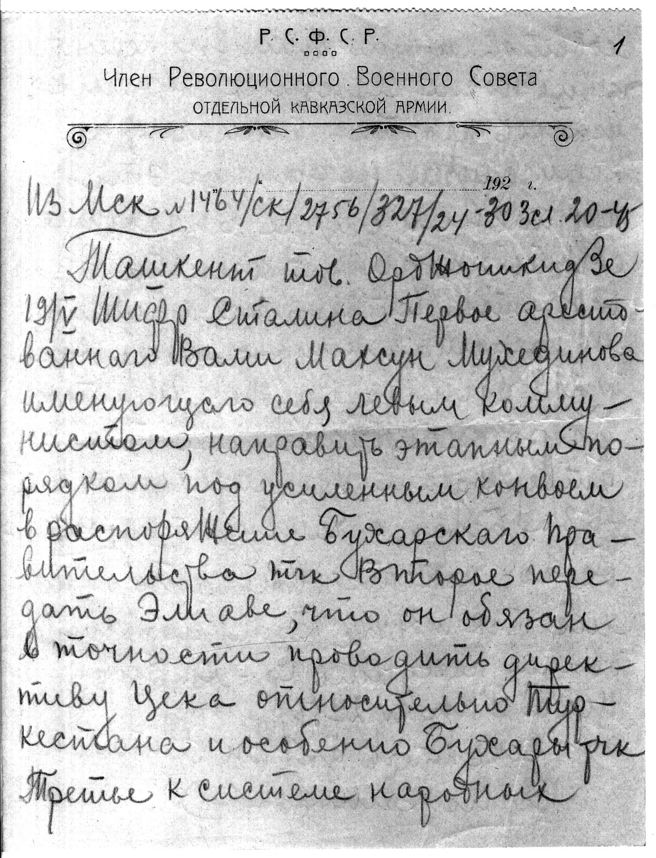 Р. С. Ф. С. Р.
1
Член Революционного Военного Совета
ОТДЕЛЬНОЙ КАВКАЗСКОЙ АРМИИ.
192 г.
Из Мск N 1464/ск/2756/327/24-30 3сл 20-45
Ташкент тов. Орджоникидзе
19/V Шифр Сталина Первое аресто-
ваннаго Вами Максун Мухединова
именующего себя левым комму-
нистом, направить этапным по-
рядком под усиленным конвоем
в распоряжение Бухарскаго Пра-
вительства тчк Второе пере-
дать Элиаве, что он обязан
в точности проводить дирек-
тиву Цека относительно Тур-
кестана и особенно Бухары тчк
Третье к системе народных